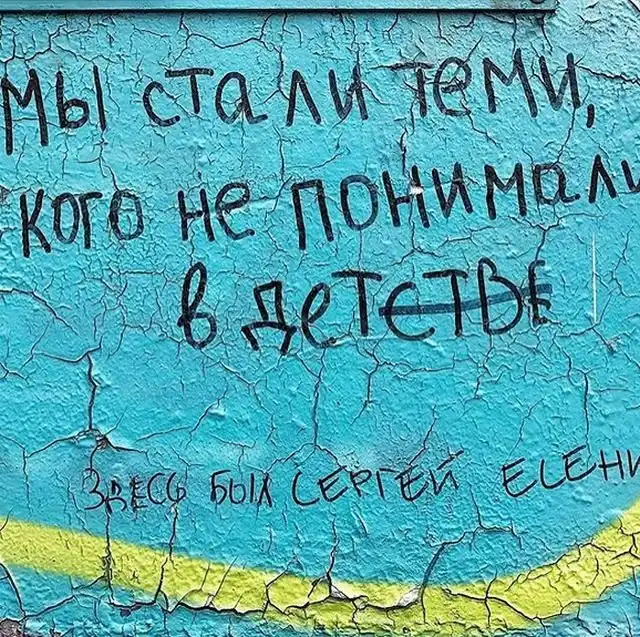 мы стали теми,
кого не понимали
в детстве
Здесь был СЕРГЕЙ ЕСЕНИ